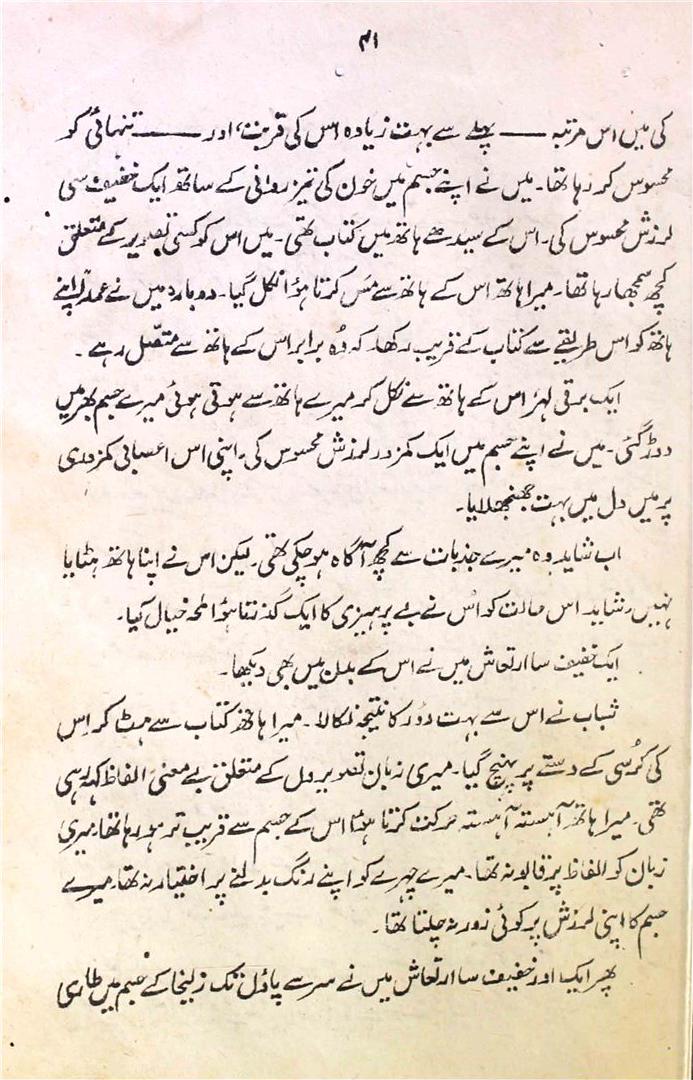 ۴۱
کی میں اس مرتبہ —— پہلے سے بہت زیادہ اس کی قربت، اور —— تنہائی کو
محسوس کر رہا تھا۔ میں نے اپنے جسم میں خون کی تیز روانی کے ساتھ ایک خفیف سی
لرزش محسوس کی۔ اس کے سیدھے ہاتھ میں کتاب تھی۔ میں اس کو کسی تصویر کے متعلق
کچھ سمجھا رہا تھا۔ میرا ہاتھ اس کے ہاتھ سے مَس کرتا ہوُا نکل گیا۔ دوبارہ میں نے عمداً اپنے
ہاتھ کو اس طریقے سے کتاب کے قریب رکھا۔ کہ وُہ برابر اس کے ہاتھ سے متصّل رہے۔
ایک برقی لہر اس کے ہاتھ سے نکل کر میرے ہاتھ سے ہوتی ہوئی میرے جسم بھر میں
دوڑ گئی۔ میں نے اپنے جسم میں ایک کمزور لرزش محسوس کی۔ اپنی اس اعصابی کمزوری
پر میں دل میں بہت جھنجھلایا۔
اب شاید وہ میرے جذبات سے کچھ آگاہ ہو چکی تھی۔ لیکن اس نے اپنا ہاتھ ہٹایا
نہیں۔ شاید اس حالت کو اُس نے بے پرہیزی کا ایک گذرتا ہوُا لمحہ خیال کیا۔
ایک خفیف سا ارتعاش میں نے اس کے بدن میں بھی دیکھا۔
شباب نے اس سے بہت دوُر کا نتیجہ نکالا۔ میرا ہاتھ کتاب سے ہٹ کر اِس
کی کُرسی کے دستے پر پہنچ گیا۔ میری زبان تصویروں کے متعلق بے معنی الفاظ کہہ رہی
تھی۔ میرا ہاتھ آہستہ آہستہ حرکت کرتا ہوُا اس کے جسم سے قریب تر ہو رہا تھا۔ میری
زبان کو الفاظ پر قابو نہ تھا۔ میرے چہرے کو اپنے رنگ بدلنے پر اختیار نہ تھا۔ میرے
جسم کا اپنی لرزش پر کوئی زور نہ چلتا تھا۔
پھر ایک اور خفیف سا ارتعاش میں نے سر سے پاؤں تک زلیخا کے جسم میں طاری